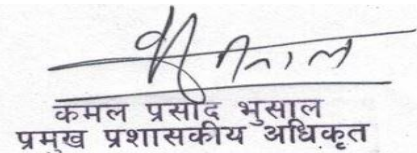 कमल प्रसाद भुसाल
प्रमुख प्रशासकीय अधिकृत